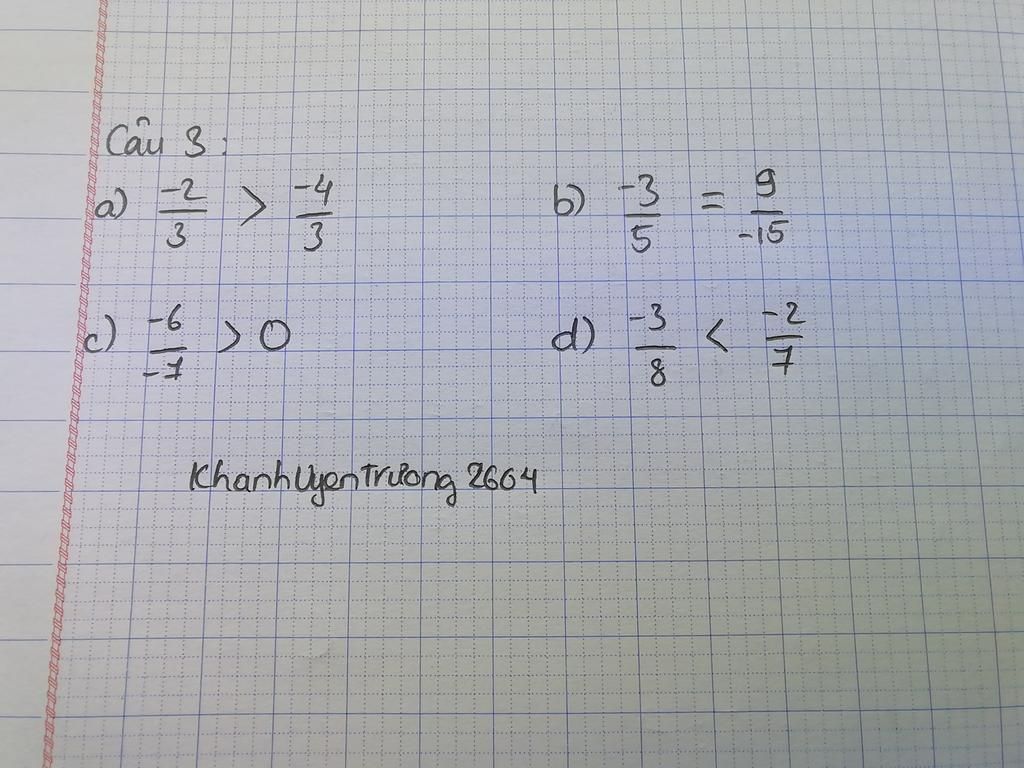 Câu 3:
a) -2/3 > -4/3 b) -3/5 = 9/-15
c) -6/-7 > 0 d) -3/8 < -2/7
KhanhUyenTrương 2664